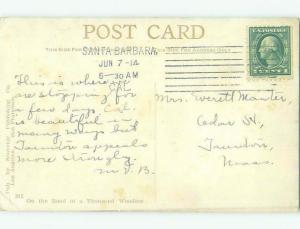 POST CARD
SANTA BARBARA,
JUN 7-14
5-30 AM
CAL
1 CENT 1
This is where we
are stopping for
a few days. Cal.
is beautiful in
many ways but
Taunton appeals
more strongly.
M. V. B.
Mrs. Everett Manter,
Cedar St,
Taunton,
Mass.
On the Road of a Thousand Wonders